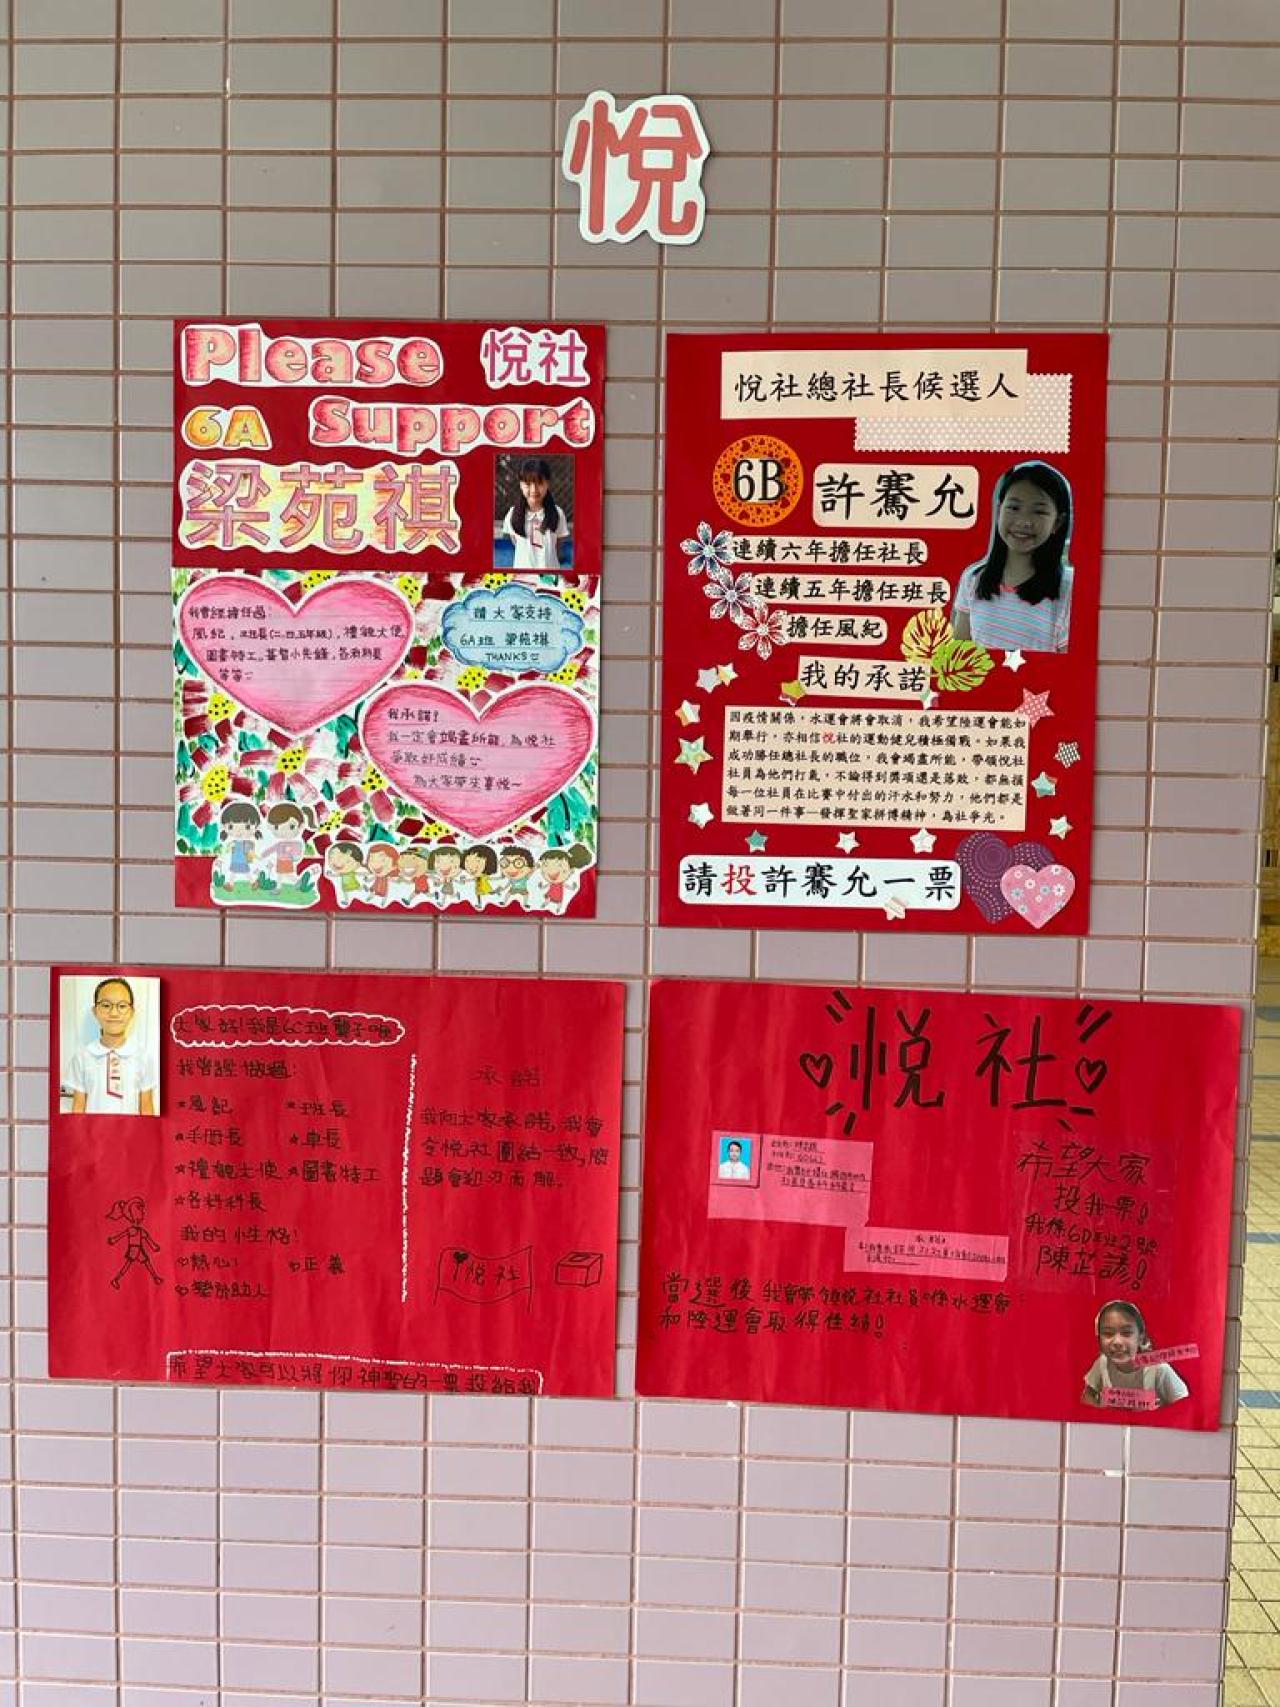 悅
Please 悅社
6A Support
梁苑祺
我曾經擔任過:
風紀，班長(二、四、五年級)，禮貌大使，
圖書特工，基督小先鋒，各科科長
等等
請大家支持
6A班 梁苑祺
THANKS
我承諾!
我一定會竭盡所能，為悅社
爭取好成績
為大家帶來喜悅~
悅社總社長候選人
6B 許騫允
連續六年擔任社長
連續五年擔任班長
擔任風紀
我的承諾
因疫情關係，水運會將會取消，我希望陸運會能如
期舉行，亦相信悅社的運動健兒積極備戰。如果我
成功勝任總社長的職位，我會竭盡所能，帶領悅社
社員為他們打氣，不論得到獎項還是落敗，都無損
每一位社員在比賽中付出的汗水和努力，他們都是
做著同一件事—發揮聖家拼博精神，為社爭光。
請投許騫允一票
大家好!我是6C班龔子
我曾經做過:
*風紀 *班長
*手冊長 *車長
*禮貌大使 *圖書特工
*各科科長
我的性格!
熱心 正義
樂於助人
承諾
我向大家承諾，我會
令悅社團結一致，問
題會迎刃而解。
悅社
希望大家可以將你神聖的一票投給我
悅社
希望大家
投我一票!
我係6D班2號
陳芷諺!
當選後我會帶領悅社社員喺水運會
和陸運會取得佳績!